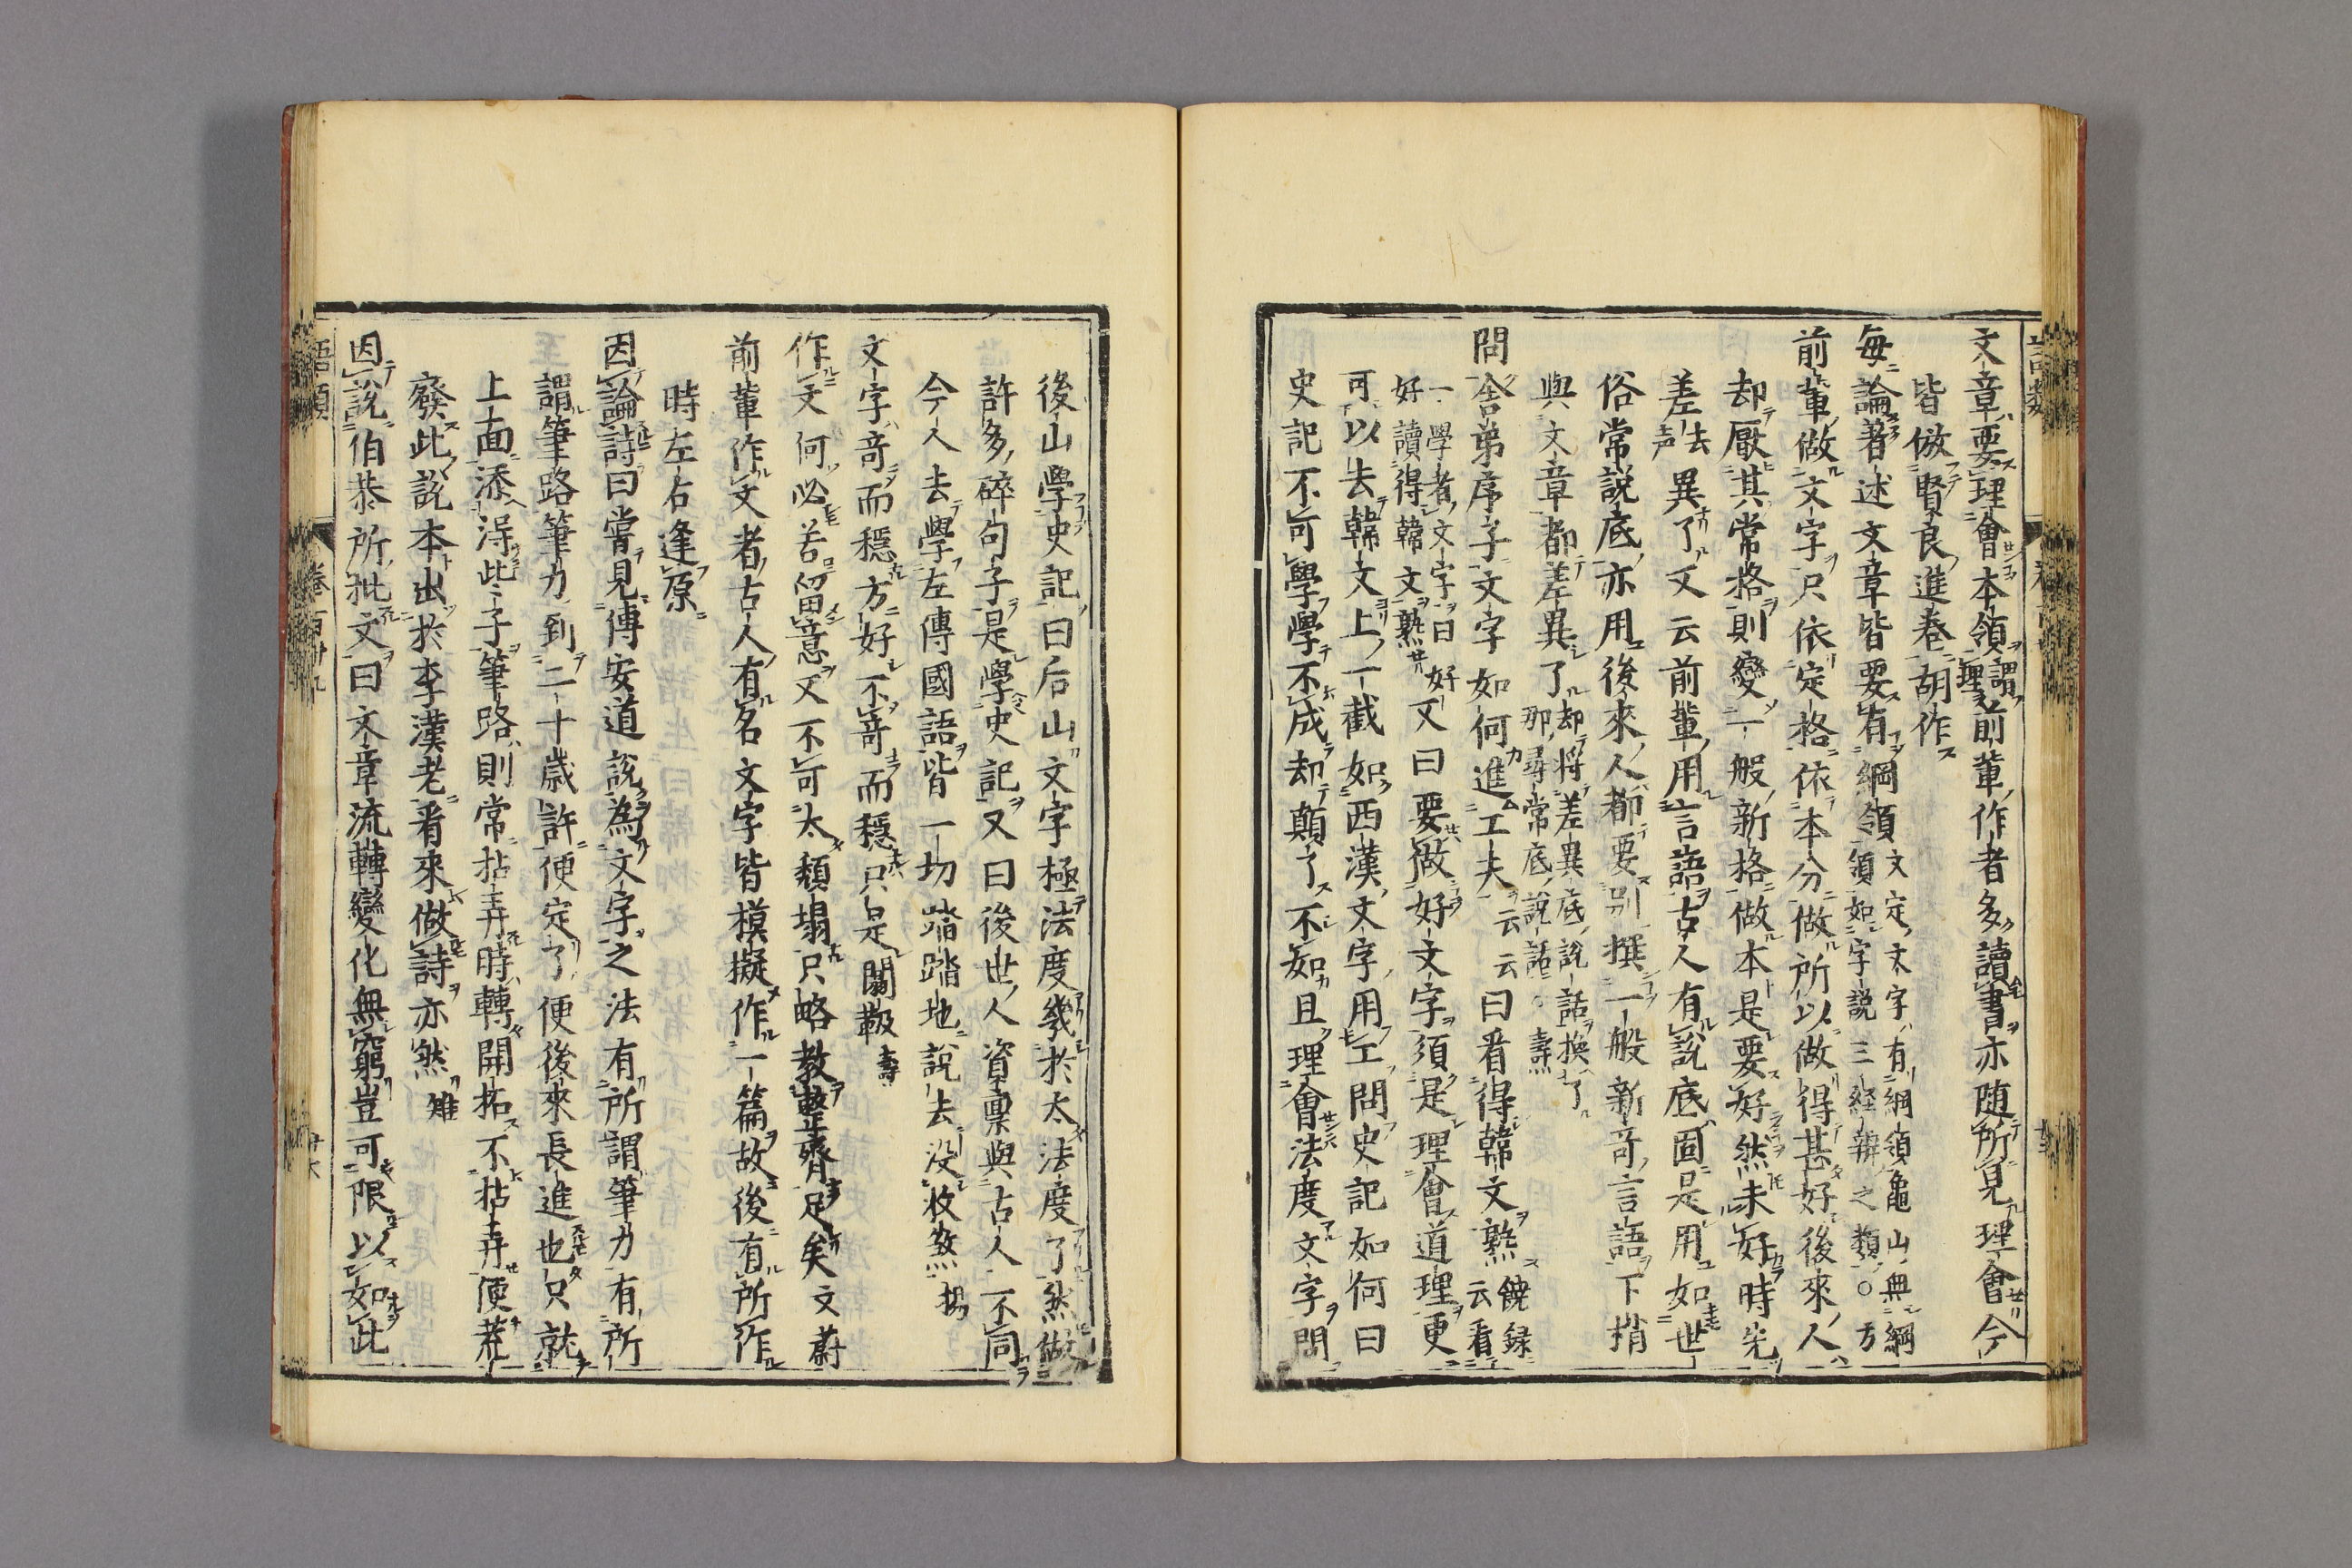 文章要理會本領謂理前輩作者多讀書亦随所見理會今
皆倣賢良進卷胡作
每論著述文章皆要有綱領文定文字有綱領龜山無綱領如字説三經辨之類○方
前輩做文字只依定格依本分做所以做得甚好後來人
却厭其常格則變一般新格做本是要好然未好時先
差去声異了又云前輩用言語古人有說底固是用如世
俗常說底亦用後來人都要别撰一般新竒言語下梢
與文章都差異了却將差異底說話換了那尋常底說話○壽
問舎弟序子文字如何進工夫云云曰看得韓文熟饒録云看
一學者文字曰好好讀得韓文熟又曰要做好文字須是理會道理更
可以去韓文上一截如西漢文字用工問史記如何曰
史記不可學學不成却顛了不如且理會法度文字問
後山學史記曰后山文字極法度幾於太法度了然做
許多碎句子是學史記又曰後世人資稟與古人不同
今人去學左傳國語皆一切踏踏地說去没收煞揚
文字竒而穩方好不竒而穩只是闒靸壽
作文何必苦留意又不可太頽塌只略教整齊足矣文蔚
前輩作文者古人有名文字皆模擬作一篇故後有所作
時左右逢原
因論詩曰嘗見傅安道說為文字之法有所謂筆力有所
謂筆路筆力到二十歲許便定了便後來長進也只就
上面添得些子筆路則常拈弄時轉開拓不拈弄便荒
廢此說本出於李漢老看來做詩亦然雉
因說伯恭所批文曰文章流轉變化無窮豈可限以如此
語類 卷百卅九 卅六